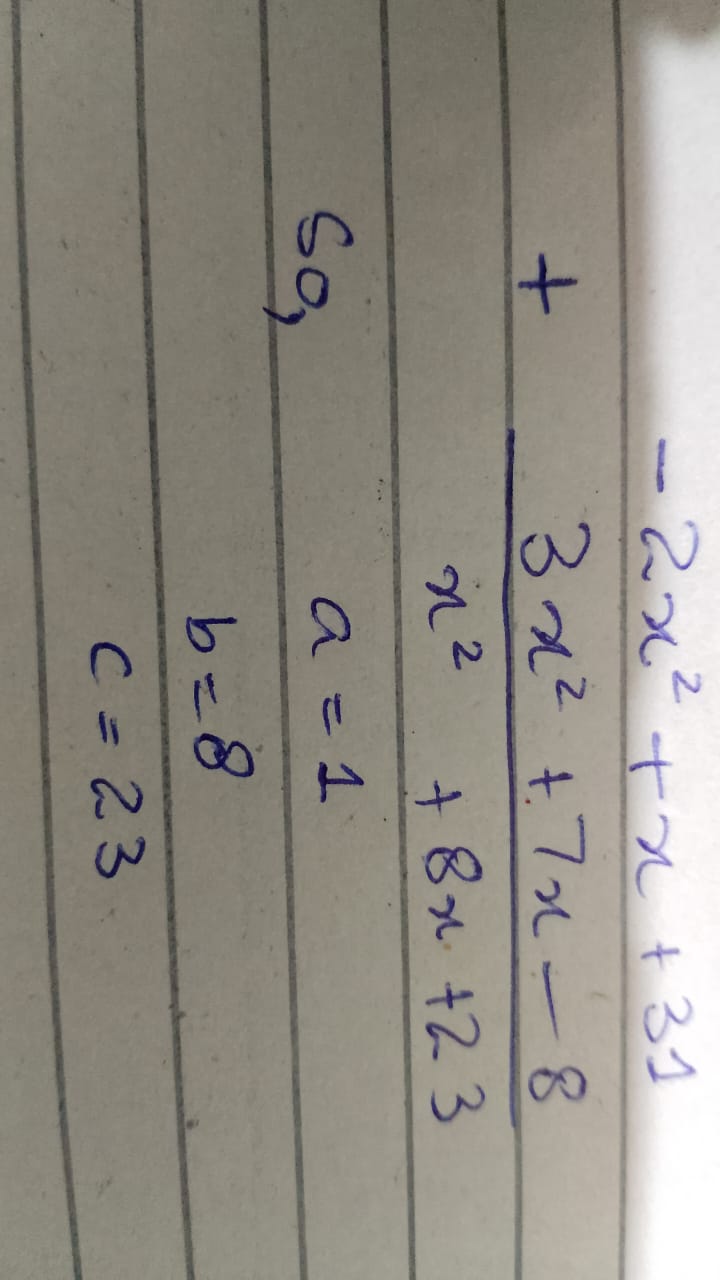 -2x² + x + 31
+ 3x² + 7x - 8
x² + 8x + 23
So, a = 1
b = 8
c = 23